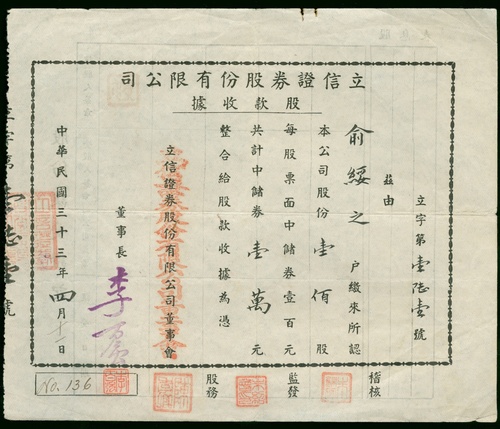 立信證券股份有限公司
股款收據
立字第壹陸壹號
茲由
俞綏之 戶繳來所認
本公司股份壹佰股
每股票面中儲券壹百元
共計中儲券壹萬元
整合給股款收據為憑
立信證券股份有限公司董事會
董事長
中華民國三十三年四月十一日
稽核
監發
股務
No. 136